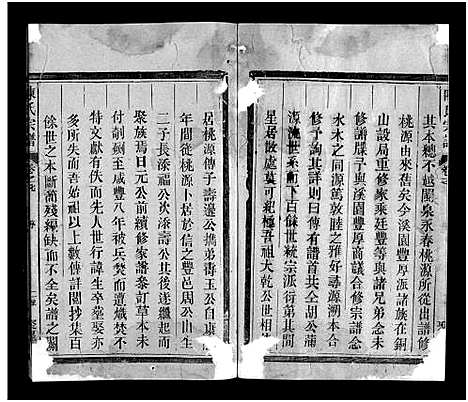 其本總不越閩泉永春桃源所從出譜修
桃源由來舊矣今溪園豐厚派諸族在銅
山設局重修家乘廷豐等與諸兄弟念未
修譜牒子與溪園豐厚商議合修宗譜念
水木之同源篤敦睦之雅好尋源溯本合
修予詢其詳則曰傳有譜首共仝胡公滿
源流世系衝下百俤世統宗派衍第其間
星居散處莫可紀極吾祖大乾公世相
居桃源傳子壽邊公攜弟壽玉公自康
年間從桃源卜居於信之豐邑周公山生
二子長漆福公次漆壽公其後遂繼起而
聚族焉日元公前續修家譜黍訂草本未
付剞劂至咸豐八年被兵燹而遭熾焚不
特文獻有佚而先人世行諱生卒塋娶亦
多所失而吾始祖以上數傳詳閱抄集百
餘世之本斷簡殘編缺而不全矣譜之闕
陳氏宗譜